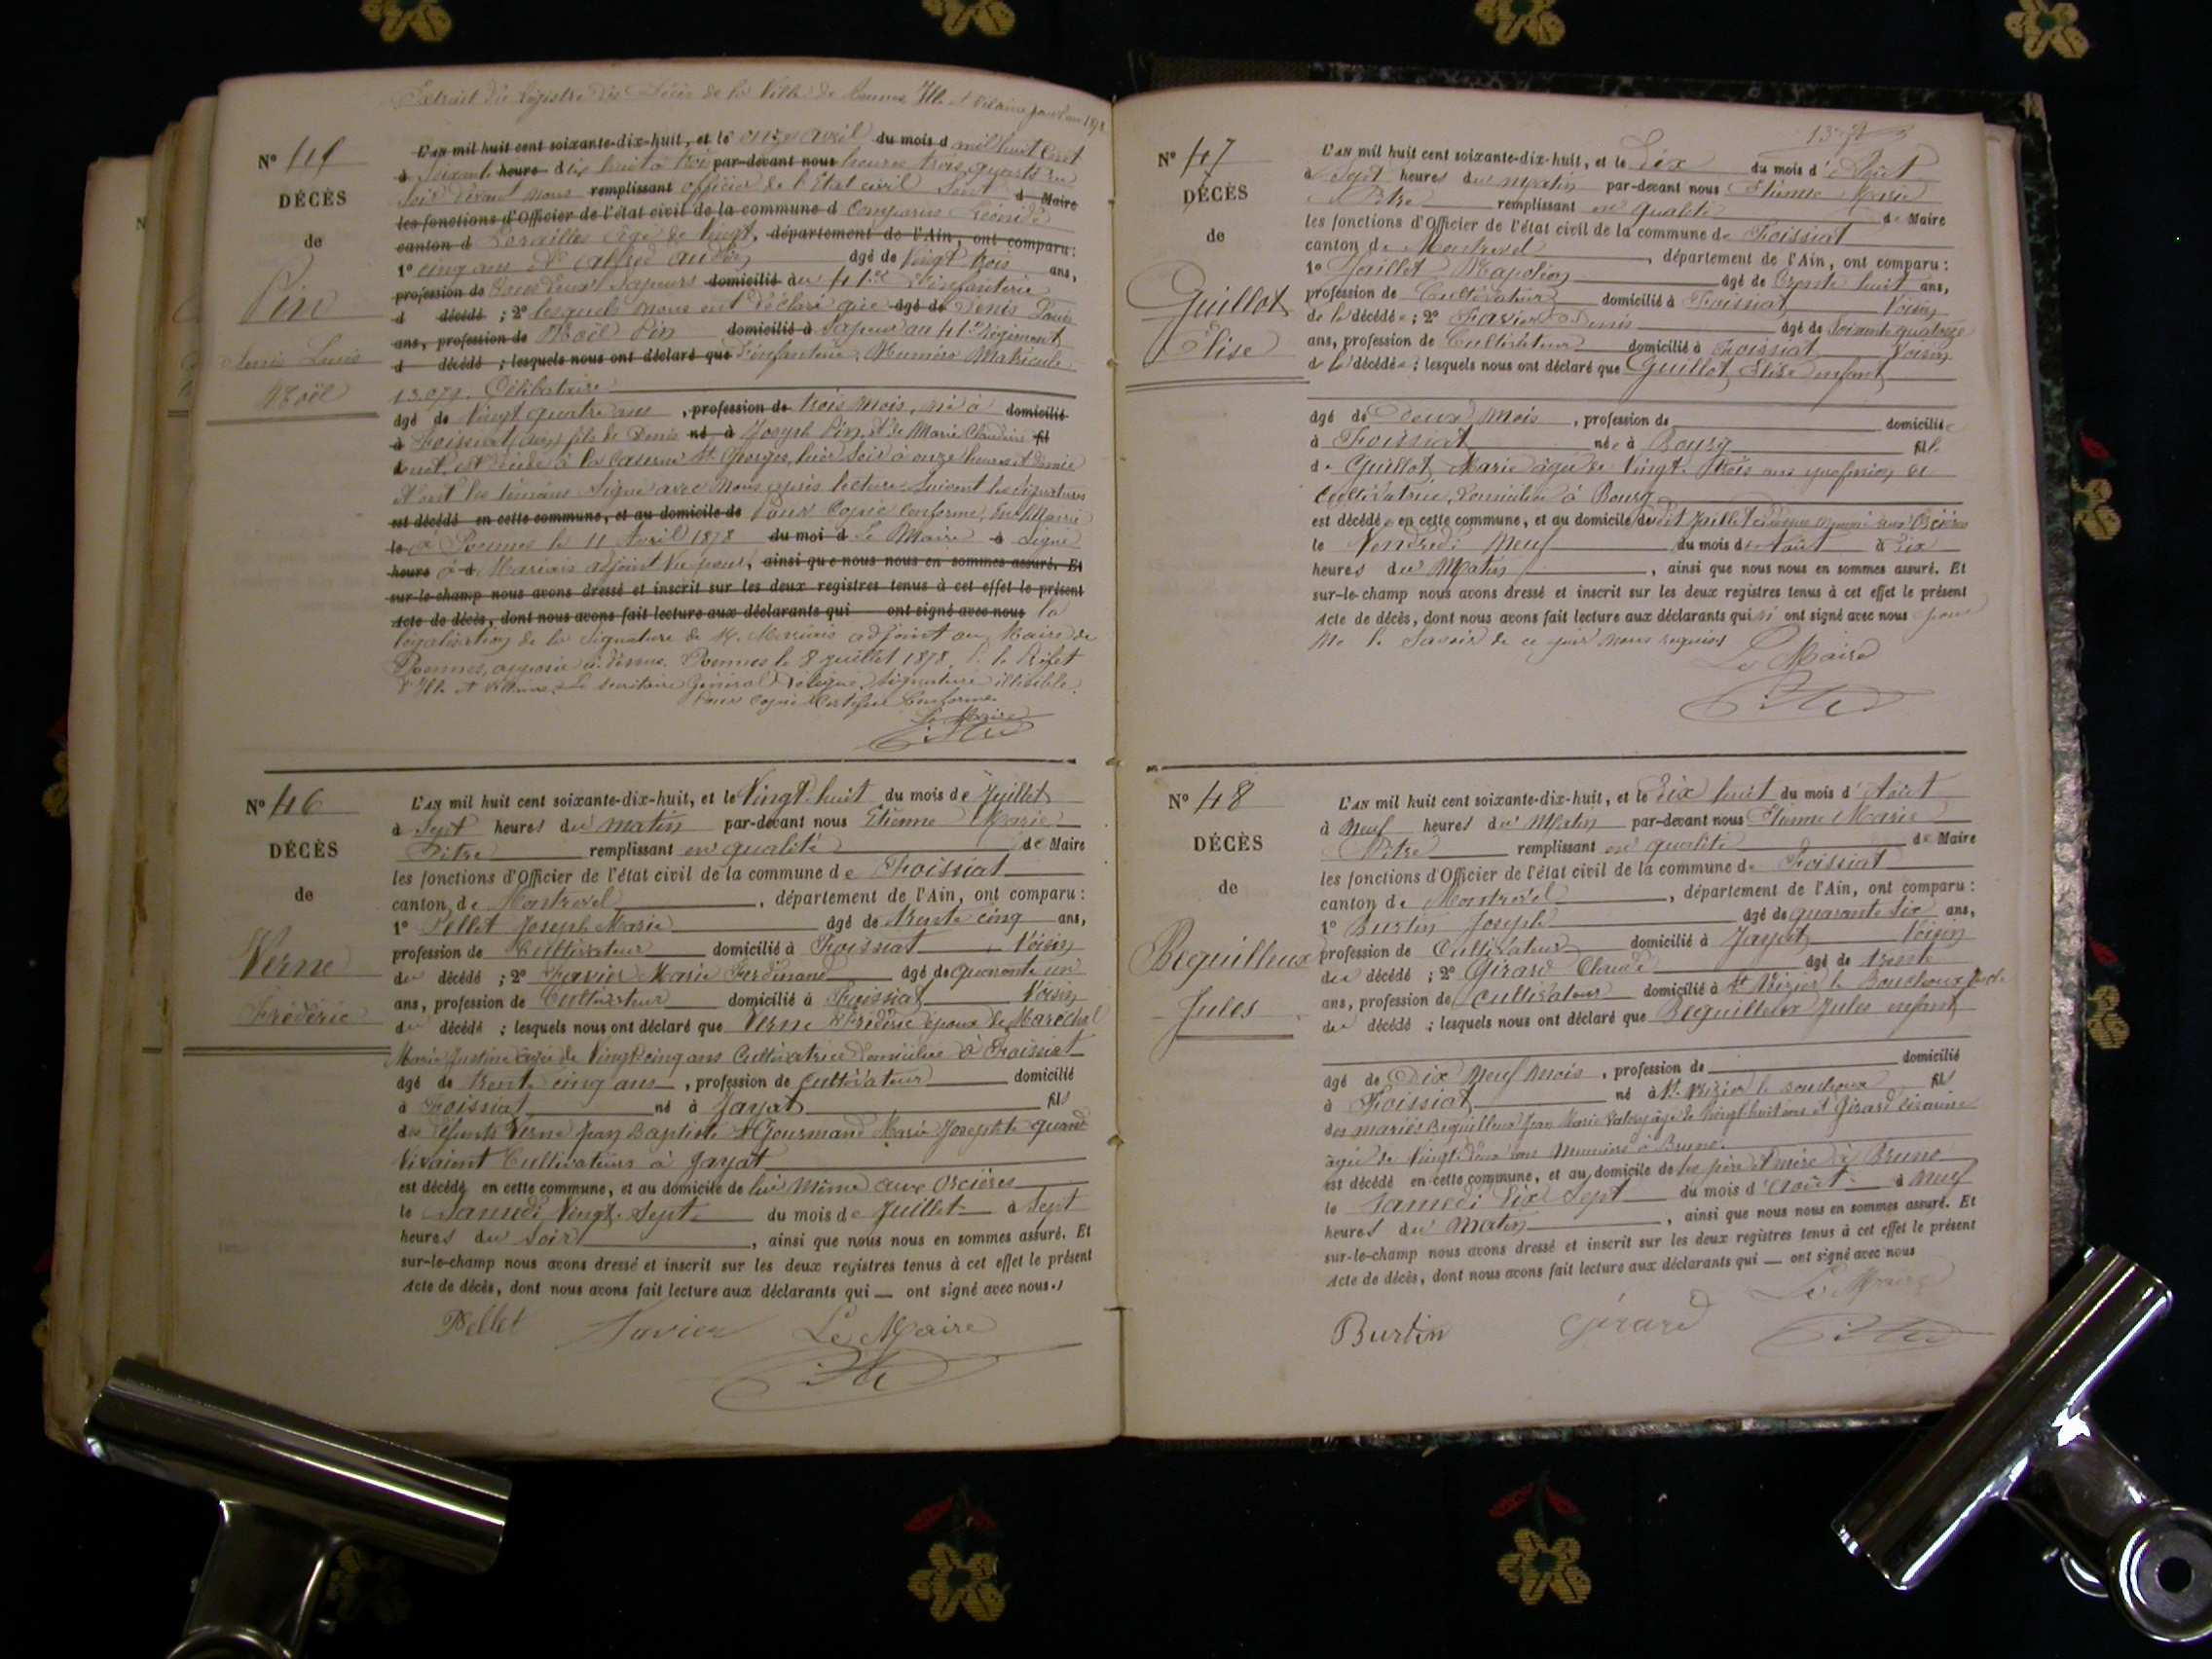 Extrait du Registre des Décès de la Ville de Rennes Ille et Vilaine pour l'an 1878
N° 45
DÉCÈS
de
Pin
Denis Louis
Noël
L'AN mil huit cent soixante-dix-huit, et le onze avril du mois d mil huit cent
à soixante heure dix huit à trois par-devant nous heures trois quarts du
soir devant nous remplissant officier de l'Etat civil sont d Maire
les fonctions d'Officier de l'état civil de la commune d comparus
canton d âgé de vingt, département de l'Ain, ont comparu :
1° cinq ans et Alfred âgé de vingt trois ans,
profession de tous deux sapeurs domicilié au 41me d'infanterie
d décédé ; 2° lesquels nous ont déclaré que âgé de Denis Louis
ans, profession de Noël Pin domicilié à sapeur au 41e Régiment
d décédé ; lesquels nous ont déclaré que d'infanterie, Numéro Matricule
13.072. Célibataire
âgé de Vingt quatre ans , profession de trois mois, né à domicilié
à Foissiat, Ain, fils de Denis né à Joseph Pin, et de Marie Claudine fil
d est décédé à la Caserne St Georges, hier soir à onze heures et demie
Et ont les témoins signé avec nous après lecture Suivent les signatures
est décédé en cette commune, et au domicile de Pour Copie conforme, En Mairie
le à Rennes le 11 Avril 1878 du moi d Le Maire à signé
heure à d Marion adjoint Vu pour, ainsi que nous nous en sommes assuré. Et
sur-le-champ nous avons dressé et inscrit sur les deux registres tenus à cet effet le présent
Acte de décès, dont nous avons fait lecture aux déclarants qui ont signé avec nous la
légalisation de la signature de M. adjoint au Maire de
Rennes, apposée ci-dessus. Rennes le 8 juillet 1878, P. le Préfet
d'Ille et Vilaine, Le secrétaire Général Délégué, signature illisible.
Pour copie Certifiée Conforme
Le Maire
Pitre
N° 46
DÉCÈS
de
Verne
Frédéric
L'AN mil huit cent soixante-dix-huit, et le Vingt huit du mois de Juillet
à Sept heures du matin par-devant nous Etienne Marie
Pitre remplissant en qualité de Maire
les fonctions d'Officier de l'état civil de la commune de Foissiat
canton de Montrevel , département de l'Ain, ont comparu :
1° Pellet Joseph Marie âgé de trente cinq ans,
profession de Cultivateur domicilié à Foissiat Voisin
du décédé ; 2° Favier Marie Ferdinand âgé de quarante un
ans, profession de Cultivateur domicilié à Foissiat Voisin
du décédé ; lesquels nous ont déclaré que Verne Frédéric époux de Maréchal
Marie Justine âgée de Vingt cinq ans Cultivatrice domiciliée à Foissiat
âgé de trente cinq ans , profession de cultivateur domicilié
à Foissiat né à Jayat fils
des défunts Verne Jean Baptiste et Gourmand Marie Josephte quand
Vivaient Cultivateurs à Jayat
est décédé en cette commune, et au domicile de lui même aux Orcières
le Samedi Vingt Sept du mois de Juillet à Sept
heures du Soir , ainsi que nous nous en sommes assuré. Et
sur-le-champ nous avons dressé et inscrit sur les deux registres tenus à cet effet le présent
Acte de décès, dont nous avons fait lecture aux déclarants qui — ont signé avec nous.
Pellet Favier Le Maire
Pitre
N° 47
DÉCÈS
de
Guillot
Elise
L'AN mil huit cent soixante-dix-huit, et le Dix du mois d'Août
à Sept heures du Matin par-devant nous Etienne Marie
Pitre remplissant en qualité de Maire
les fonctions d'Officier de l'état civil de la commune de Foissiat
canton de Montrevel , département de l'Ain, ont comparu :
1° Jaillet Napoléon âgé de trente huit ans,
profession de Cultivateur domicilié à Foissiat Voisin
de la décédée ; 2° Favier Denis âgé de Soixante quatorze
ans, profession de Cultivateur domicilié à Foissiat Voisin
de la décédée ; lesquels nous ont déclaré que Guillot Elise enfant
âgé de deux Mois , profession de domiciliée
à Foissiat née à Bourg fille
de Guillot Marie âgée de Vingt trois ans profession de
Cultivatrice, domiciliée à Bourg
est décédée en cette commune, et au domicile du dit Jaillet aux Orcières
le Vendredi Neuf du mois d'Août à Dix
heures du Matin , ainsi que nous nous en sommes assuré. Et
sur-le-champ nous avons dressé et inscrit sur les deux registres tenus à cet effet le présent
Acte de décès, dont nous avons fait lecture aux déclarants qui n'ont signé avec nous pour
ne le Savoir de ce par nous requis
Le Maire
Pitre
N° 48
DÉCÈS
de
Beguilleux
Jules
L'AN mil huit cent soixante-dix-huit, et le Dix huit du mois d'Août
à Neuf heures du Matin par-devant nous Etienne Marie
Pitre remplissant en qualité de Maire
les fonctions d'Officier de l'état civil de la commune de Foissiat
canton de Montrevel , département de l'Ain, ont comparu :
1° Burtin Joseph âgé de quarante six ans,
profession de Cultivateur domicilié à Jayat Voisin
du décédé ; 2° Girard Claude âgé de trente
ans, profession de cultivateur domicilié à St Nizier le Bouchoux
du décédé ; lesquels nous ont déclaré que Beguilleux Jules enfant
âgé de Dix Neuf Mois , profession de domicilié
à Foissiat né à St Nizier le Bouchoux fils
des mariés Beguilleux Jean Marie âgé de Vingt huit ans et Girard
âgée de Vingt deux ans Meuniers à Brune.
est décédé en cette commune, et au domicile de ses père et mère à Brune
le Samedi Dix Sept du mois d'Août à Neuf
heures du Matin , ainsi que nous nous en sommes assuré. Et
sur-le-champ nous avons dressé et inscrit sur les deux registres tenus à cet effet le présent
Acte de décès, dont nous avons fait lecture aux déclarants qui — ont signé avec nous
Le Maire
Burtin Girard Pitre